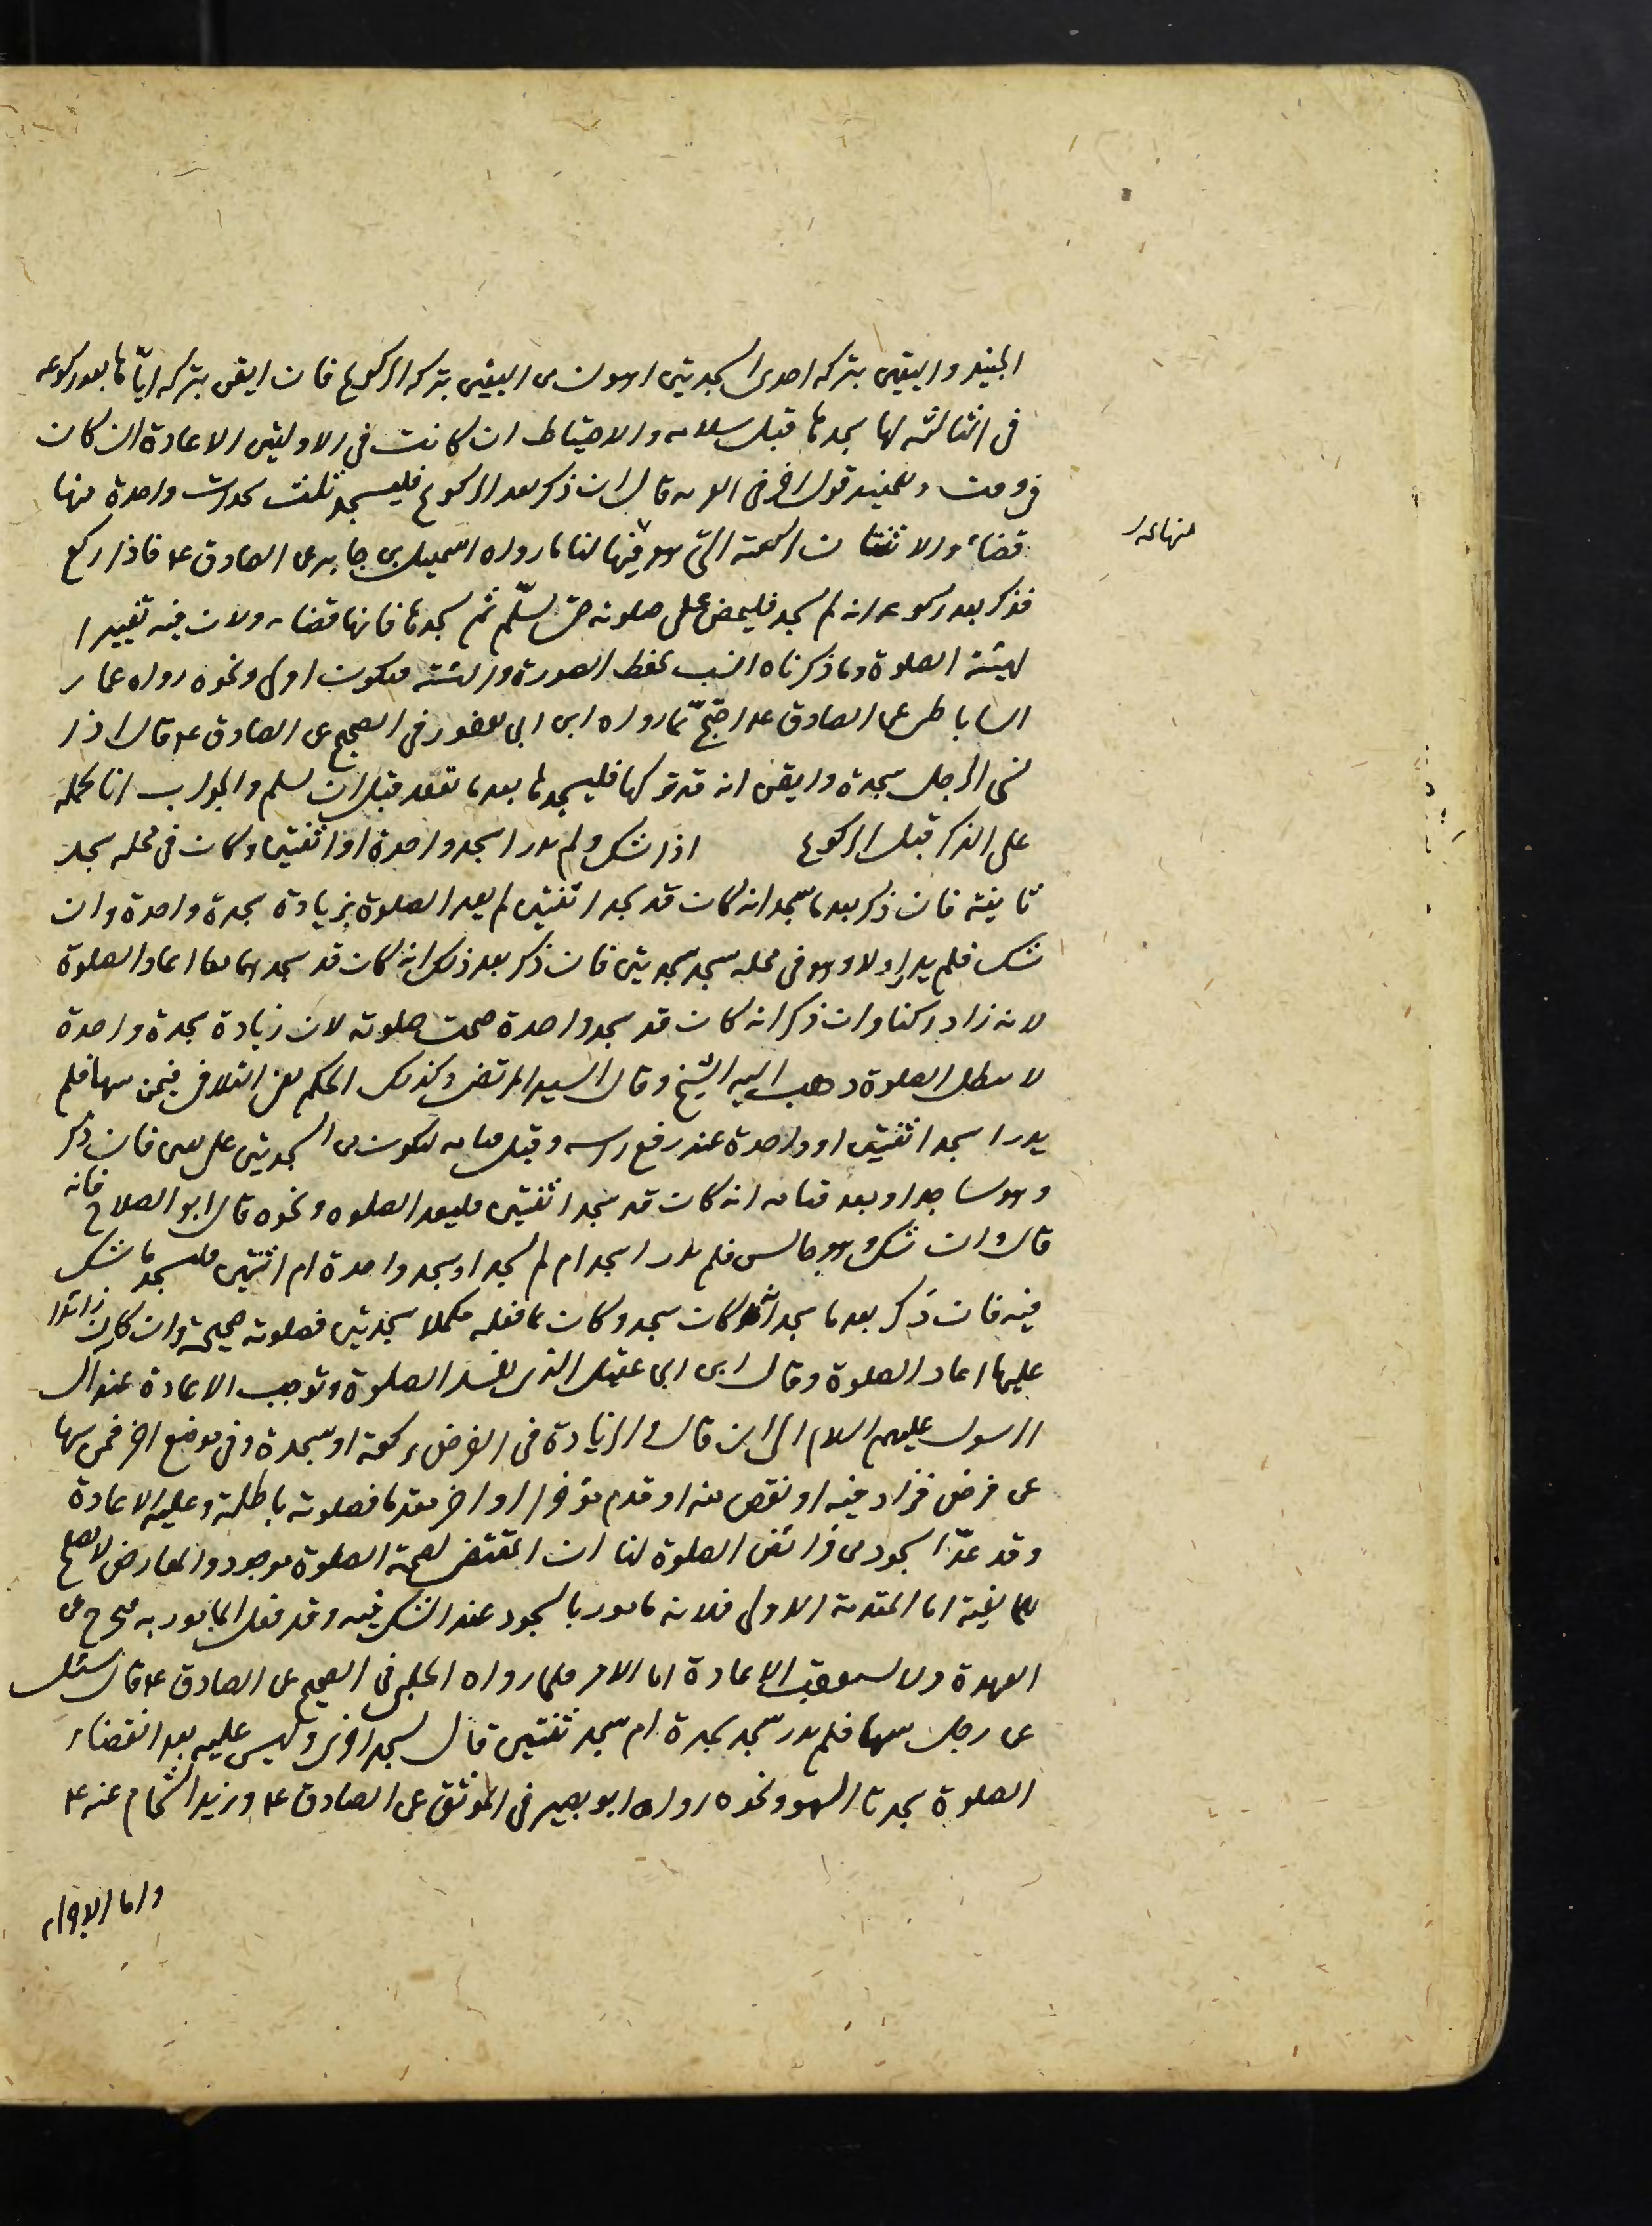 الجنيد واليقين بتركه احدى السجدتين اهون من اليقين بتركه الركوع فان ايقن بتركه اياها بعد ركوعه
فى الثالثة لها سجدها قبل سلامه والاحتياط ان كانت فى الاوليتين الاعادة ان كان
فى وقت وللمفيد قول اخر فى الغرية قال ان ذكر بعد الركوع فليسجد ثلث سجدات واحدة منها
قضاء والاثنتان للركعة التى هو فيها لنا ما رواه اسمعيل بن جابر عن الصادق ع فاذا ركع
فذكر بعد ركوعه انه لم يسجد فليمض على صلوته حتى يسلّم ثم يسجدها فانها قضاء ولان فيه تغييرا
لهيئة الصلوة وما ذكرناه انسب بحفظ الصورة والهيئة فيكون اولى ونحوه رواه عمار
الساباطى عن الصادق ع احتجّ بما رواه ابن ابى يعفور فى الصحيح عن الصادق ع قال اذا
نسى الرجل سجدة وايقن انه قد تركها فليسجدها بعد ما تقعد قبل ان يسلم والجواب انا نحمله
على الذكر قبل الركوع اذا شك ولم يدر اسجد واحدة او اثنتين وكان فى محله سجد
ثانية فان ذكر بعد ما سجد انه كان قد سجد اثنتين لم يعد الصلوة بزيادة سجدة واحدة وان
شك فلم يدر اولا وهو فى محله سجد سجدتين فان ذكر بعد ذلك انه كان قد سجدهما معا اعاد الصلوة
لانه زاد ركنا وان ذكر انه كان قد سجد واحدة صحت صلوته لان زيادة سجدة واحدة
لا يبطل الصلوة ذهب اليه الشيخ وقال السيد المرتضى وكذلك الحكم يعنى التلافى فيمن سها فلم
يدر اسجد اثنتين او واحدة عند رفع راسه وقبل قيامه ليكون من السجدتين على يقين فان ذكر
وهو ساجد او بعد قيامه انه كان قد سجد اثنتين فليعد الصلوه ونحوه قال ابو الصلاح فانه
قال وان شك وهو جالس فلم يدر اسجد ام لم يسجد او سجد واحدة ام اثنتين فليسجد ما شك
فيه فان ذكر بعد ما سجد انه كان سجد وكان ما فعله مكملا سجدتين فصلوته صحيحة وان كان زائدا
عليها اعاد الصلوة وقال ابن ابى عقيل الذى يفسد الصلوة وتوجب الاعادة عند ال
الرسول عليهم السلام الى ان قال والزيادة فى الفرض ركعة او سجدة وفى موضع اخر فمن سها
عن فرض فزاد فيه او نقص منه او قدم مؤخرا او اخر مقدما فصلوته باطلة وعليه الاعادة
وقد عدّ السجود من فرائض الصلوة لنا ان المقتضى لصحة الصلوة موجود والمعارض لا يصلح
للمانعية اما المقدمة الاولى فلانه مامور بالسجود عند الشك فيه وقد فعل المامور به فيخرج عن
العهدة ولا يستعقب الاعادة اما الامر فلما رواه الحلبى فى الصحيح عن الصادق ع قال سئل
عن رجل سها فلم يدر سجد سجدة ام سجد ثنتين قال يسجد اخرى وليس عليه بعد انقضاء
الصلوة سجدتا السهو ونحوه رواه ابو بصير فى الموثق عن الصادق ع وزيد الشحام عنه ع
واما الاجزاء